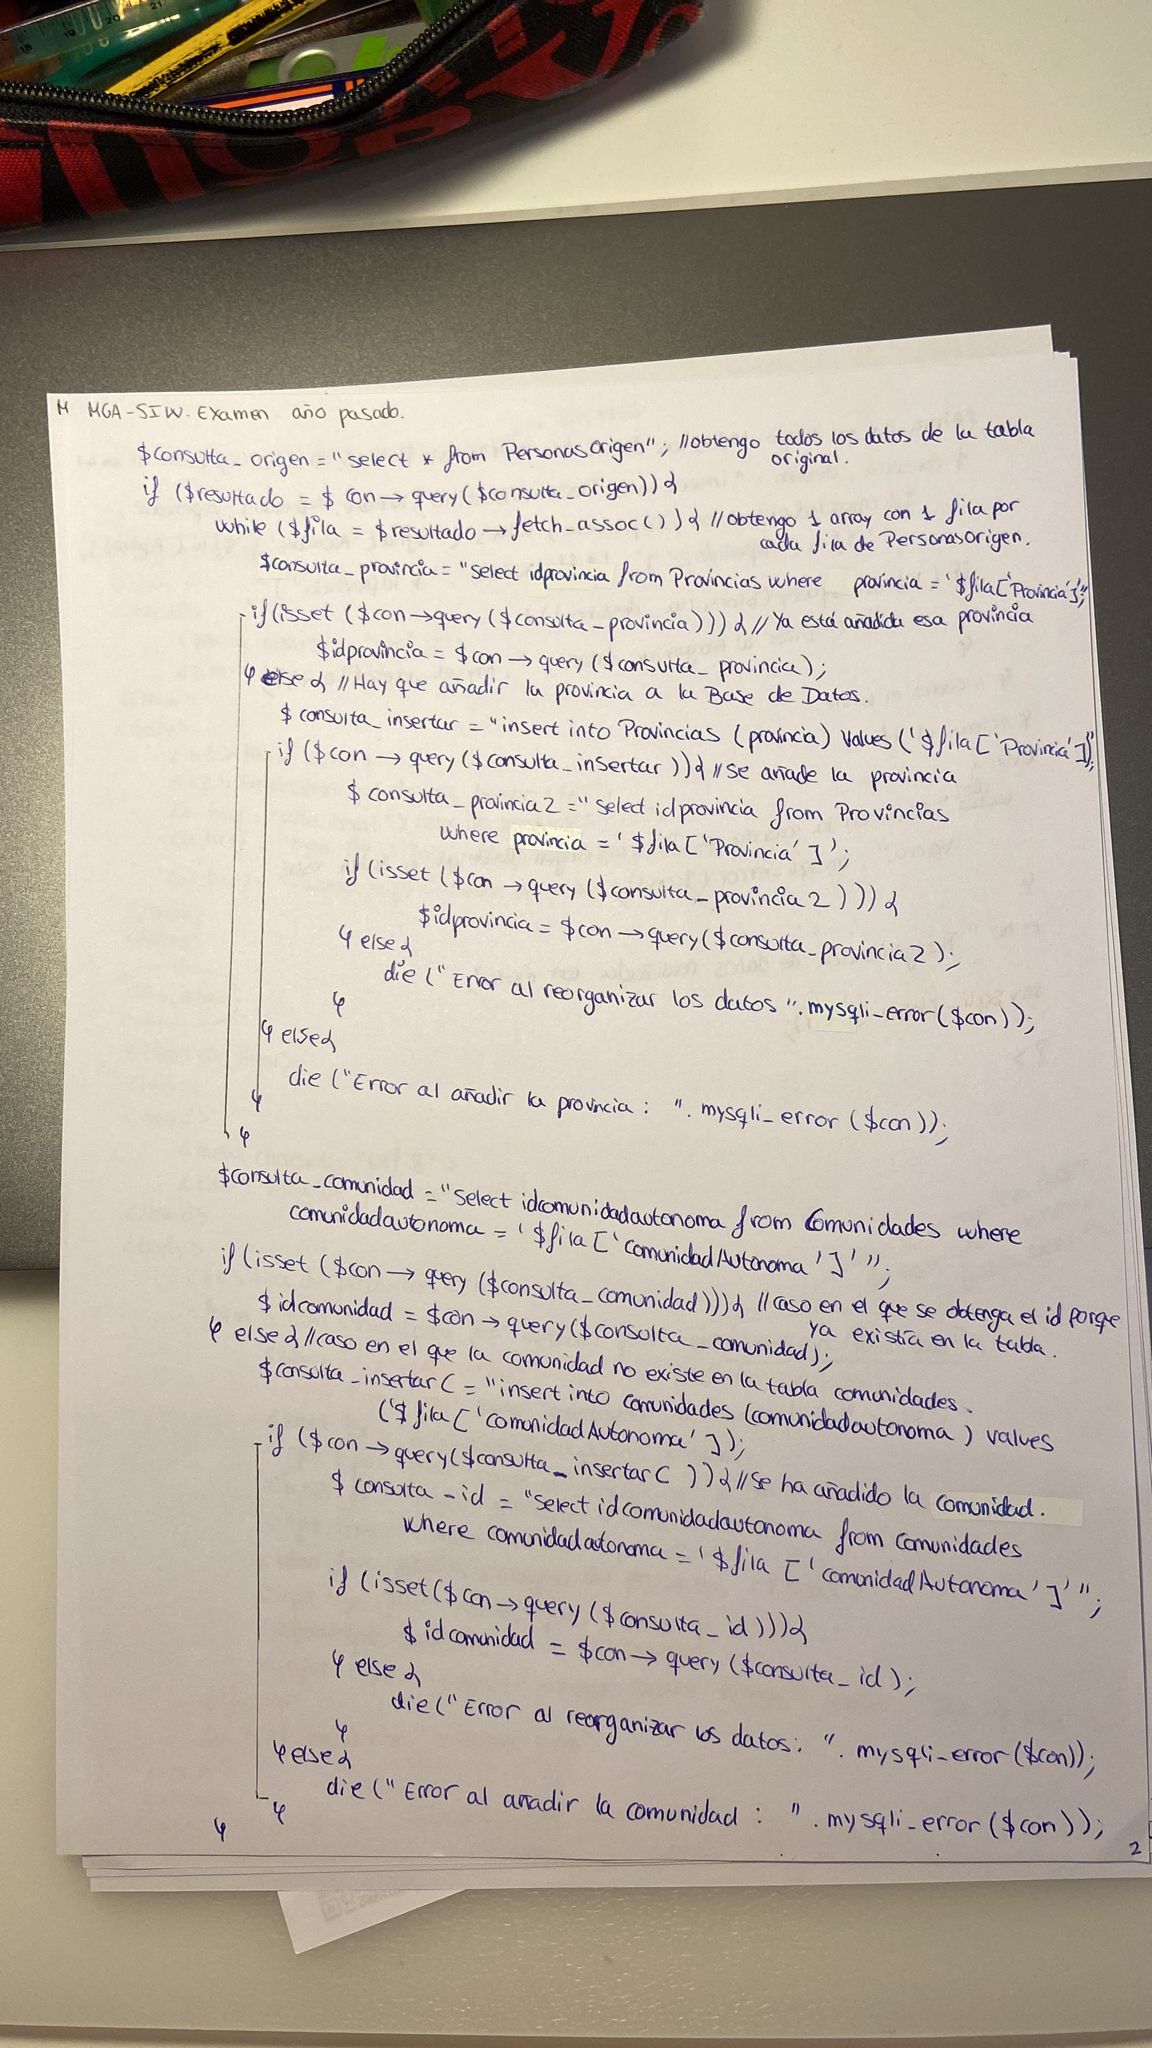 M MGA-SIW. Examen año pasado.
$consulta_origen = "select * from PersonasOrigen"; //obtengo todos los datos de la tabla
original.
if ($resultado = $con->query($consulta_origen)){
while ($fila = $resultado->fetch_assoc()){ //obtengo 1 array con 1 fila por
cada fila de PersonasOrigen.
$consulta_provincia = "select idprovincia from Provincias where provincia = '$fila['Provincia']'";
if(isset ($con->query($consulta_provincia))){ // Ya está añadida esa provincia
$idprovincia = $con->query($consulta_provincia);
} else { //Hay que añadir la provincia a la Base de Datos.
$consulta_insertar = "insert into Provincias (provincia) values ('$fila['Provincia'])";
if ($con->query($consulta_insertar)){ //se añade la provincia
$consulta_provincia2 = "select idprovincia from Provincias
where provincia = '$fila['Provincia']';
if (isset ($con->query($consulta_provincia2))){
$idprovincia = $con->query($consulta_provincia2);
} else {
die ("Error al reorganizar los datos ".mysqli_error($con));
}
} else {
die ("Error al añadir la provincia: ". mysqli_error($con));
}
}
$consulta_comunidad = "select idcomunidadautonoma from Comunidades where
comunidadautonoma = '$fila['comunidadAutonoma']'";
if (isset ($con->query($consulta_comunidad))){ //caso en el que se obtenga el id porque
ya existía en la tabla.
$idcomunidad = $con->query($consulta_comunidad);
} else { //caso en el que la comunidad no existe en la tabla comunidades.
$consulta_insertarC = "insert into comunidades (comunidadautonoma) values
('$fila['comunidadAutonoma']);
if ($con->query($consulta_insertarC)){ //se ha añadido la comunidad.
$consulta_id = "select idcomunidadautonoma from comunidades
where comunidadautonoma = '$fila['comunidadAutonoma']'";
if (isset($con->query($consulta_id))){
$idcomunidad = $con->query($consulta_id);
} else {
die("Error al reorganizar los datos: ". mysqli_error($con));
}
} else {
die ("Error al añadir la comunidad: ". mysqli_error($con));
}
}
2